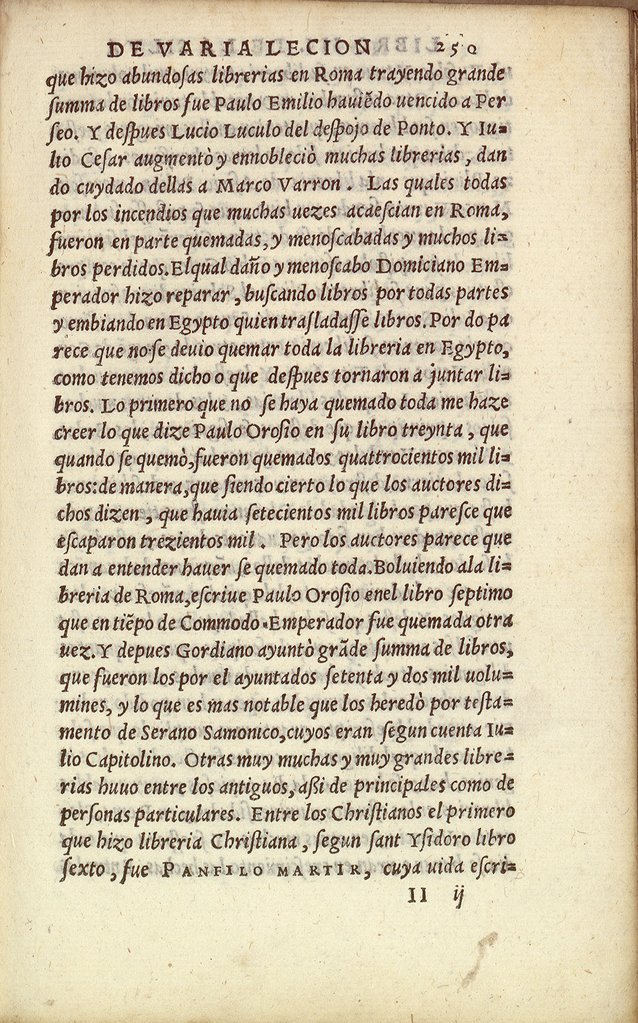 DE VARIA LECION 250
que hizo abundoſas librerias en Roma trayendo grande
ſumma de libros fue Paulo Emilio haviẽdo uencido a Per
ſeo. Y deſpues Lucio Luculo del deſpojo de Ponto. Y Iu=
lio Ceſar augmentò y ennobleciò muchas librerias, dan
do cuydado dellas a Marco Varron. Las quales todas
por los incendios que muchas uezes acaeſcian en Roma,
fueron en parte quemadas, y menoſcabadas y muchos li=
bros perdidos. Elqual daño y menoſcabo Domiciano Em=
perador hizo reparar, buſcando libros por todas partes
y embiando en Egypto quien traſladaſſe libros. Por do pa
rece que no ſe deuio quemar toda la libreria en Egypto,
como tenemos dicho o que deſpues tornaron a juntar li=
bros. Lo primero que no ſe haya quemado toda me haze
creer lo que dize Paulo Oroſio en ſu libro treynta, que
quando ſe quemò, fueron quemados quattrocientos mil li=
bros: de manera, que ſiendo cierto lo que los auctores di=
chos dizen, que hauia ſetecientos mil libros pareſce que
eſcaparon trezientos mil. Pero los auctores parece que
dan a entender hauer ſe quemado toda. Boluiendo ala li=
breria de Roma, eſcriue Paulo Oroſio enel libro ſeptimo
que en tiẽpo de Commodo Emperador fue quemada otra
uez. Y depues Gordiano ayuntò grãde ſumma de libros,
que fueron los por el ayuntados ſetenta y dos mil uolu=
mines, y lo que es mas notable que los heredò por teſta=
mento de Serano Samonico, cuyos eran ſegun cuenta Iu=
lio Capitolino. Otras muy muchas y muy grandes libre=
rias huuo entre los antiguos, aßi de principales como de
perſonas particulares. Entre los Chriſtianos el primero
que hizo libreria Chriſtiana, ſegun ſant Yſidoro libro
ſexto, fue PANFILO MARTIR, cuya uida eſcri=
II ij